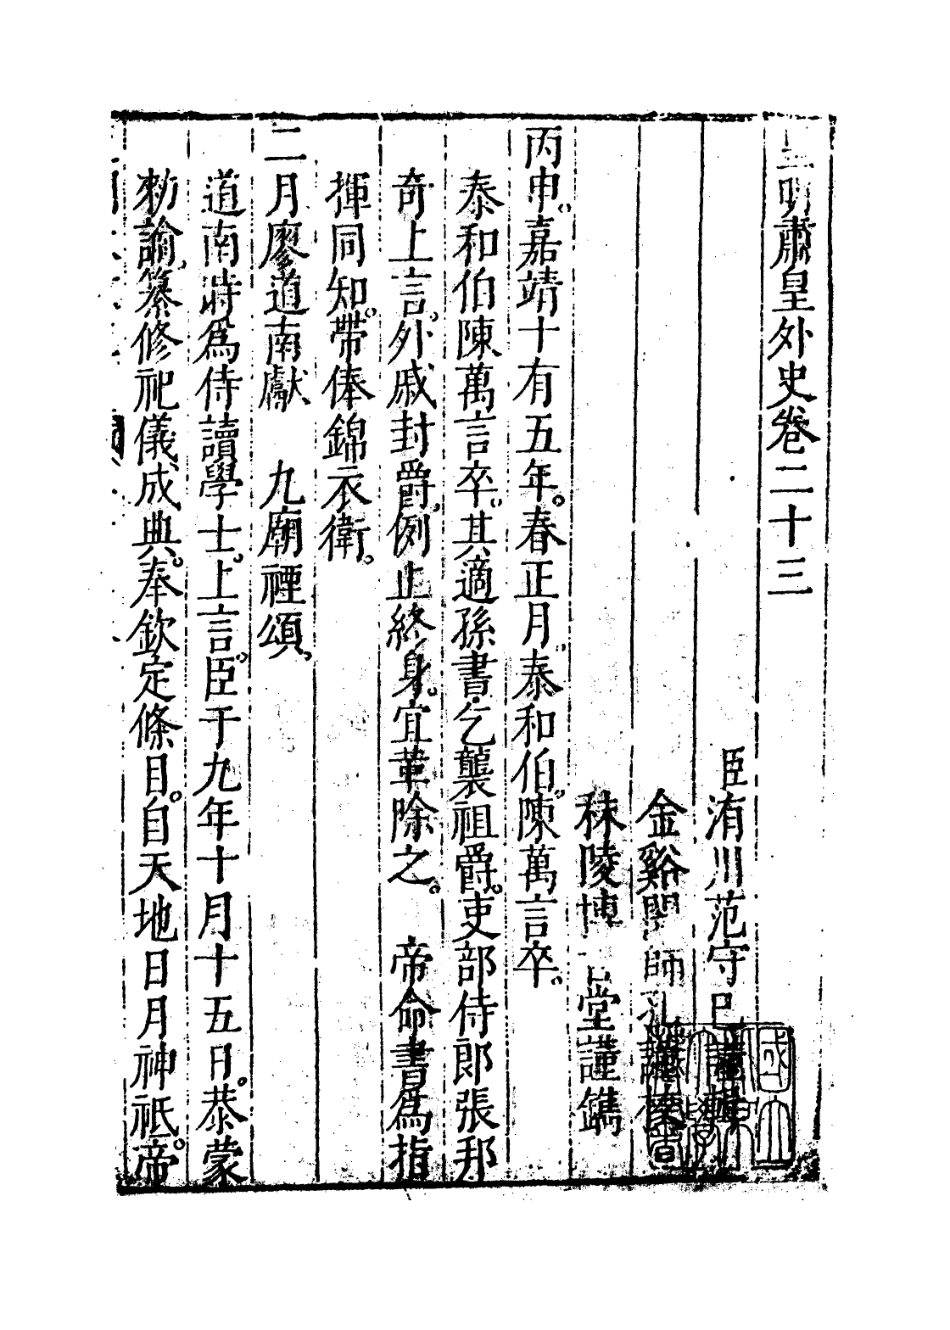 皇明肅皇外史卷二十三
臣洧川范守己謹輯
金谿門師孔謹
秣陵博堂謹鐫
丙申。嘉靖十有五年。春正月。泰和伯。陳萬言卒。
泰和伯陳萬言卒。其適孫書乞襲祖爵。吏部侍郎張邦
奇上言。外戚封爵。例止終身。宜革除之。 帝命書爲指
揮同知。帶俸錦衣衛。
二月廖道南獻 九廟禋頌。
道南時爲侍讀學士。上言。臣于九年十月十五日。恭蒙
勑諭。纂修祀儀成典。奉欽定條目。自天地日月神祇。帝